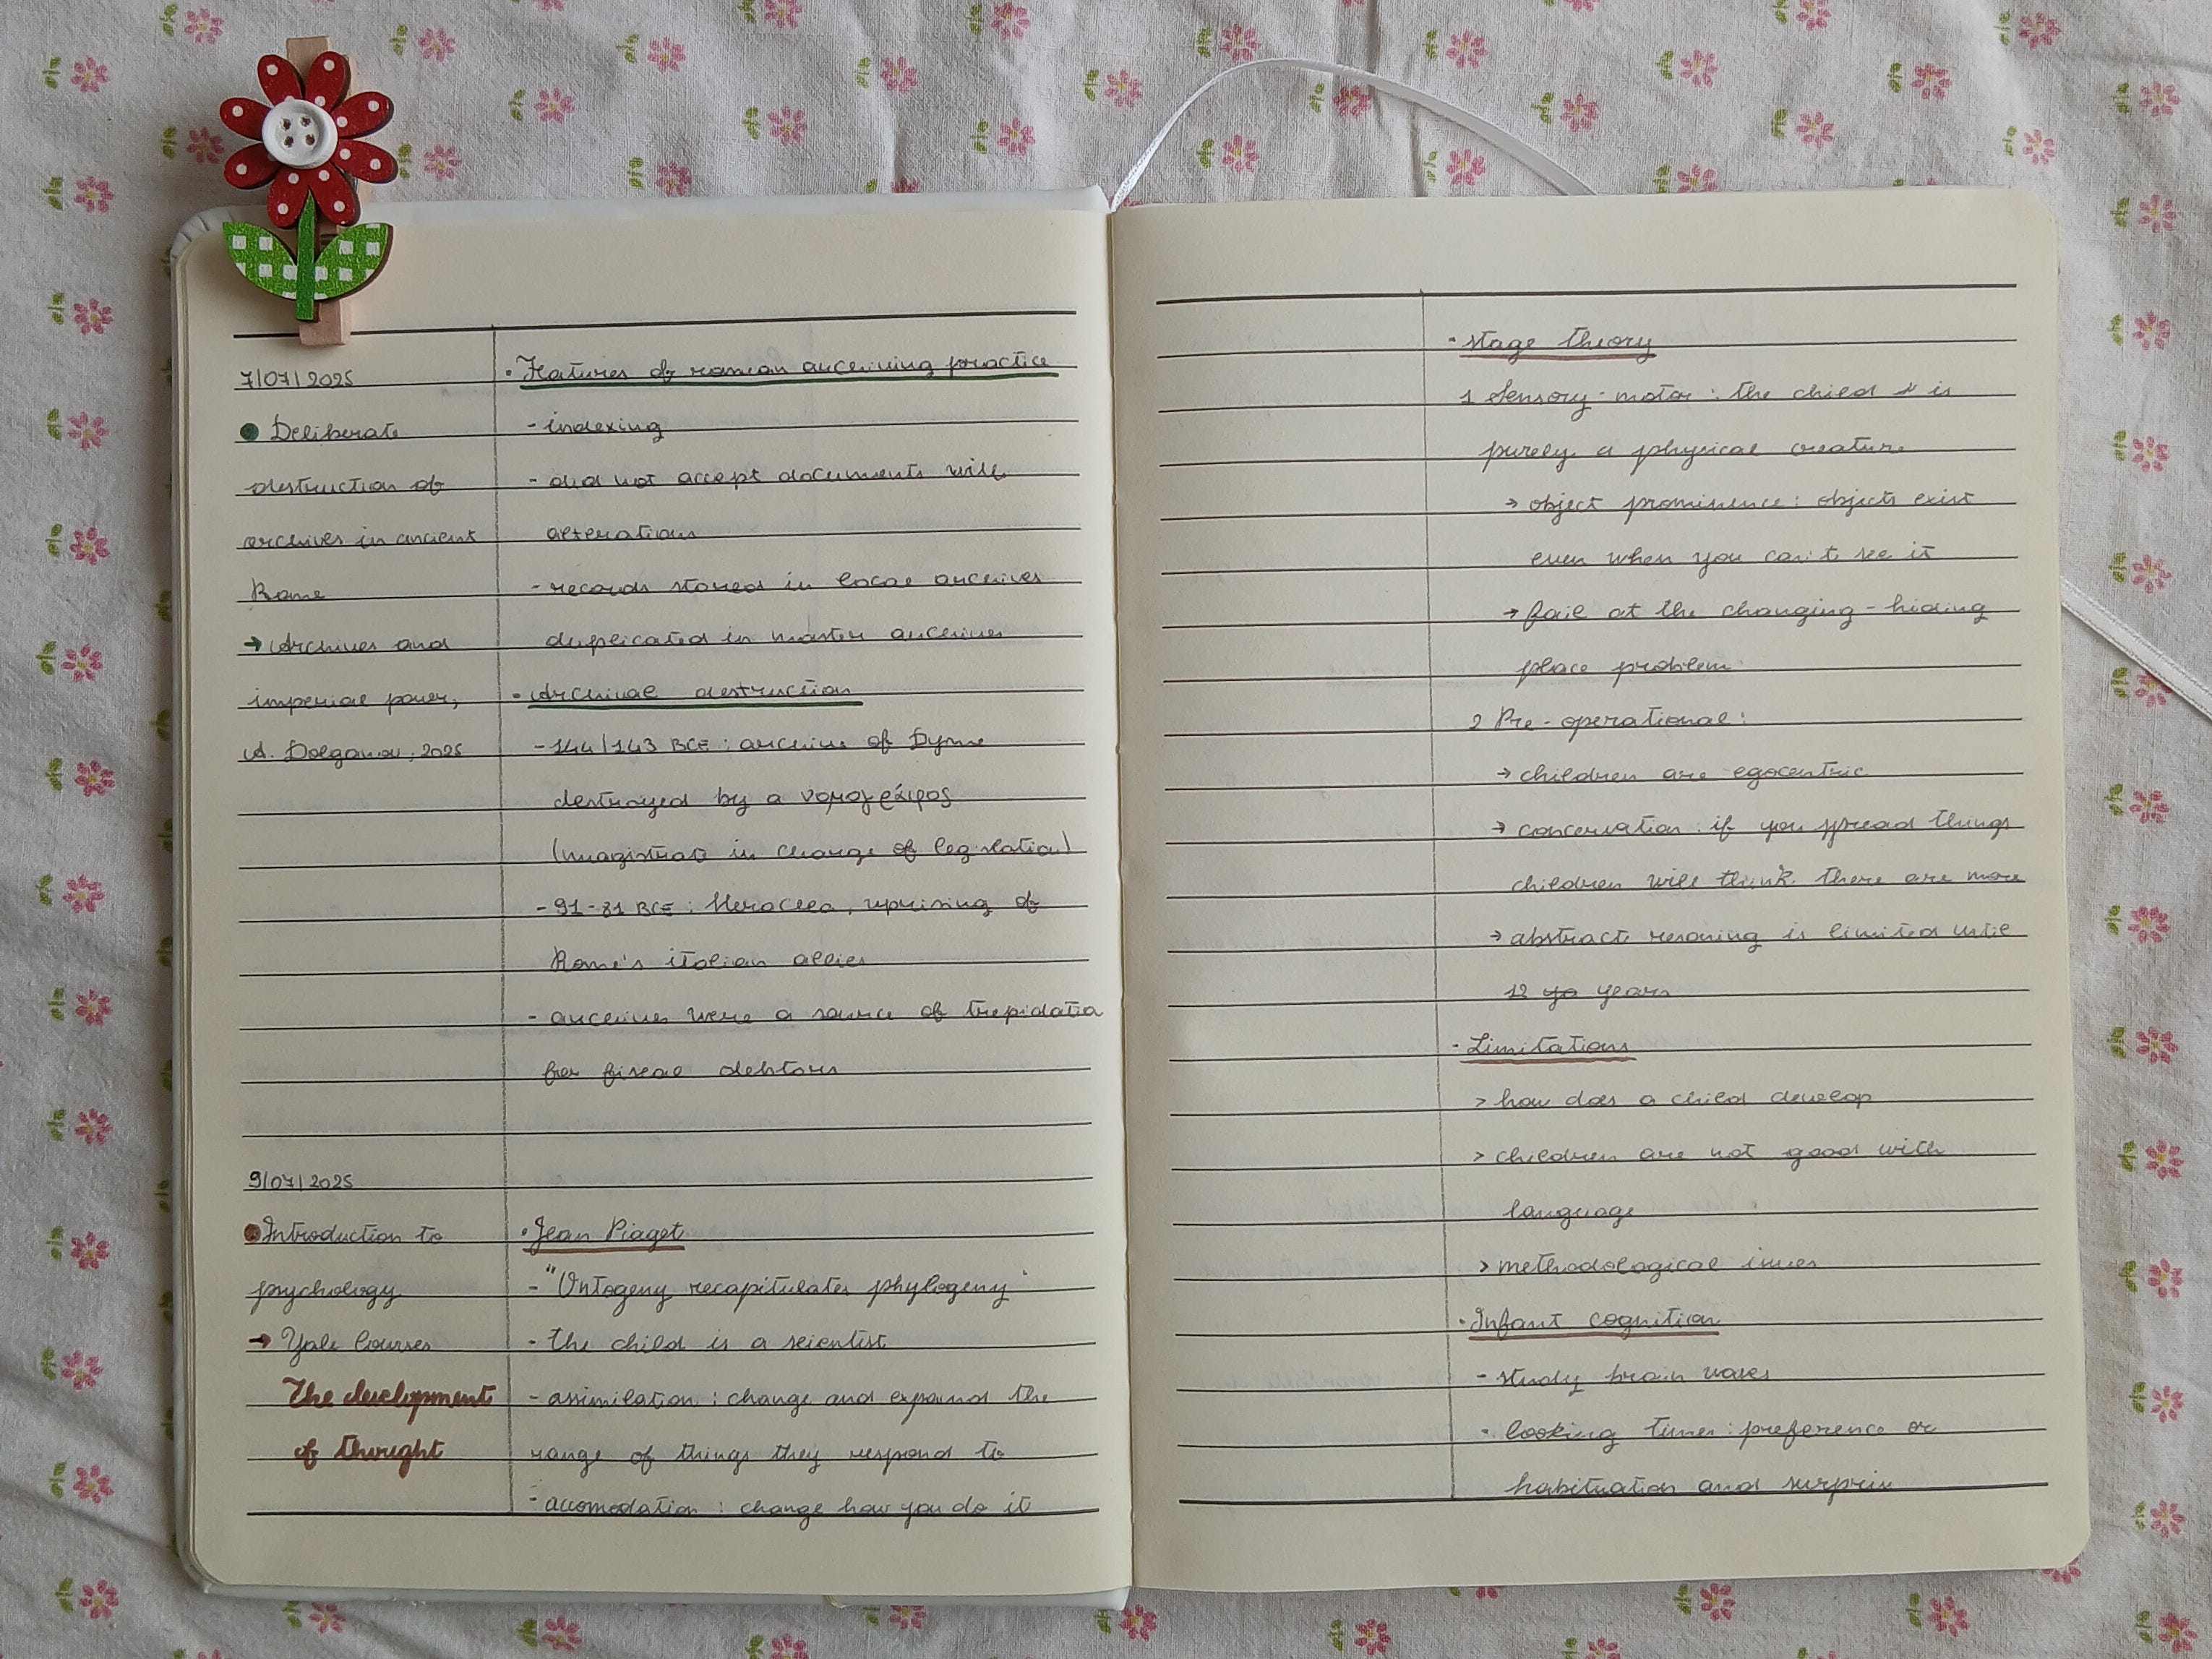 7/07/2025
Deliberate
destruction of
archives in ancient
Rome
→ Archives and
imperial power,
A. Dolganov, 2025
• Features of roman archiving practice
- indexing
- did not accept documents with
alterations
- records stored in local archives
duplicated in master archives
• Archival destruction
- 144/143 BCE : archive of Dyme
destroyed by a νομογράφος
(magistrate in charge of legislation)
- 91-81 BCE : Heraclea, uprising of
Rome's italian allies
- archives were a source of trepidatio
for fiscal debtors
9/07/2025
Introduction to
psychology
→ Yale Courses
The development
of thought
• Jean Piaget
- "Ontogeny recapitulates phylogeny"
- the child is a scientist
- assimilation : change and expand the
range of things they respond to
- accomodation : change how you do it
• stage theory
1 Sensory-motor : the child is
purely a physical creature
→ object prominence : objects exist
even when you can't see it
→ fail at the changing-hiding
place problem
2 Pre-operational :
→ children are egocentric
→ conservation : if you spread things
children will think there are more
→ abstract resoning is limited until
12 yo years
• Limitations
> how does a child develop
> children are not good with
language
> methodological issues
• Infant cognition
- study brain waves
- looking times : preference or
habituation and surprise